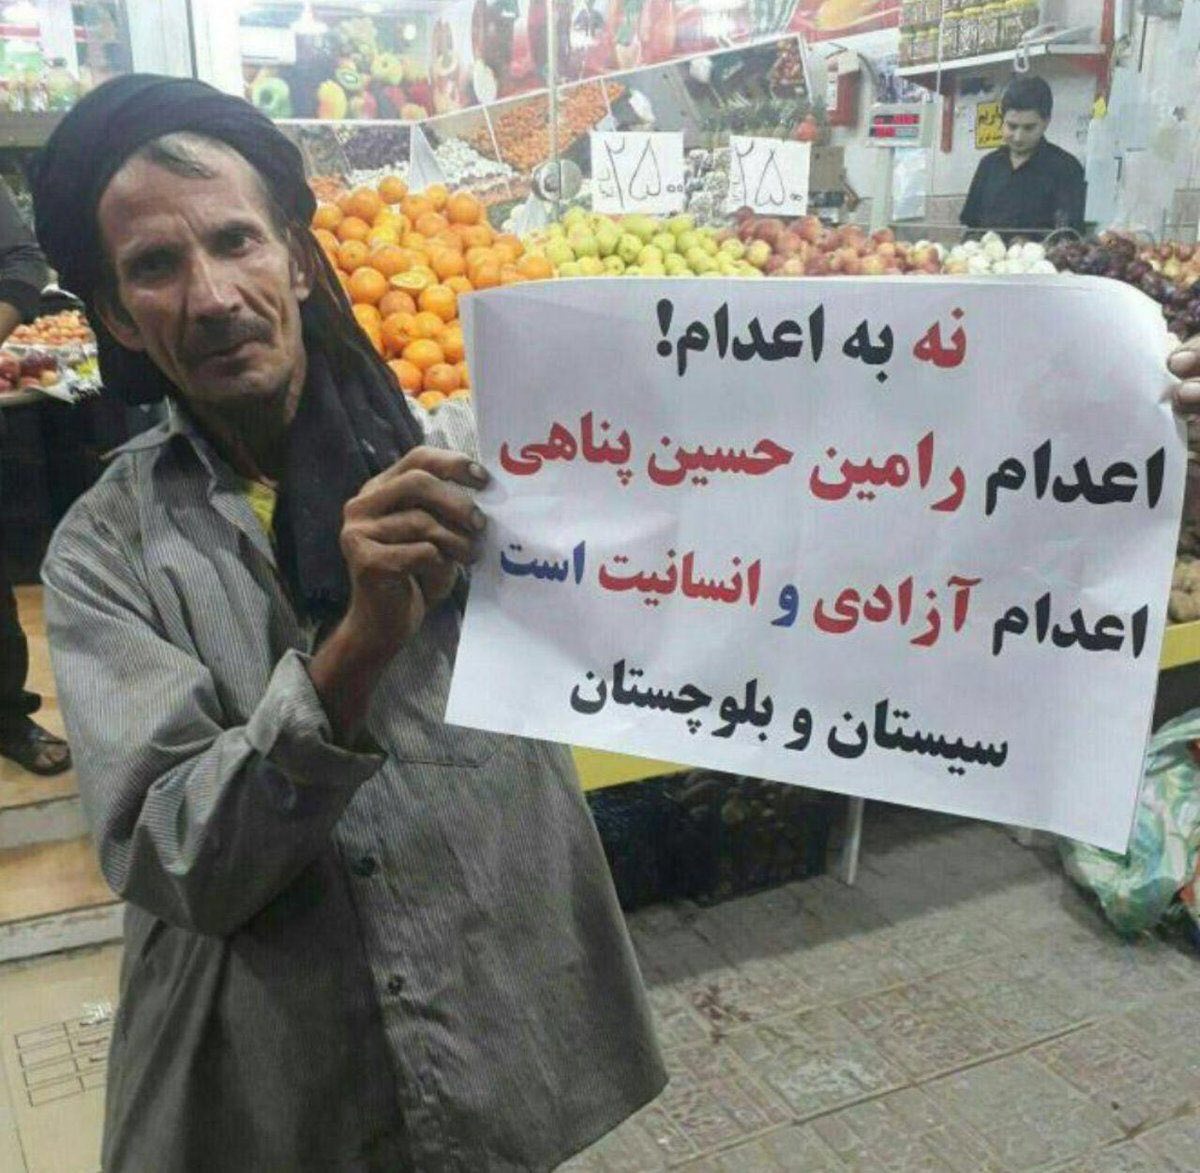 نه به اعدام!
اعدام رامین حسین پناهی
اعدام آزادی و انسانیت است
سیستان و بلوچستان
۲۵۰۰
۲۵۰۰